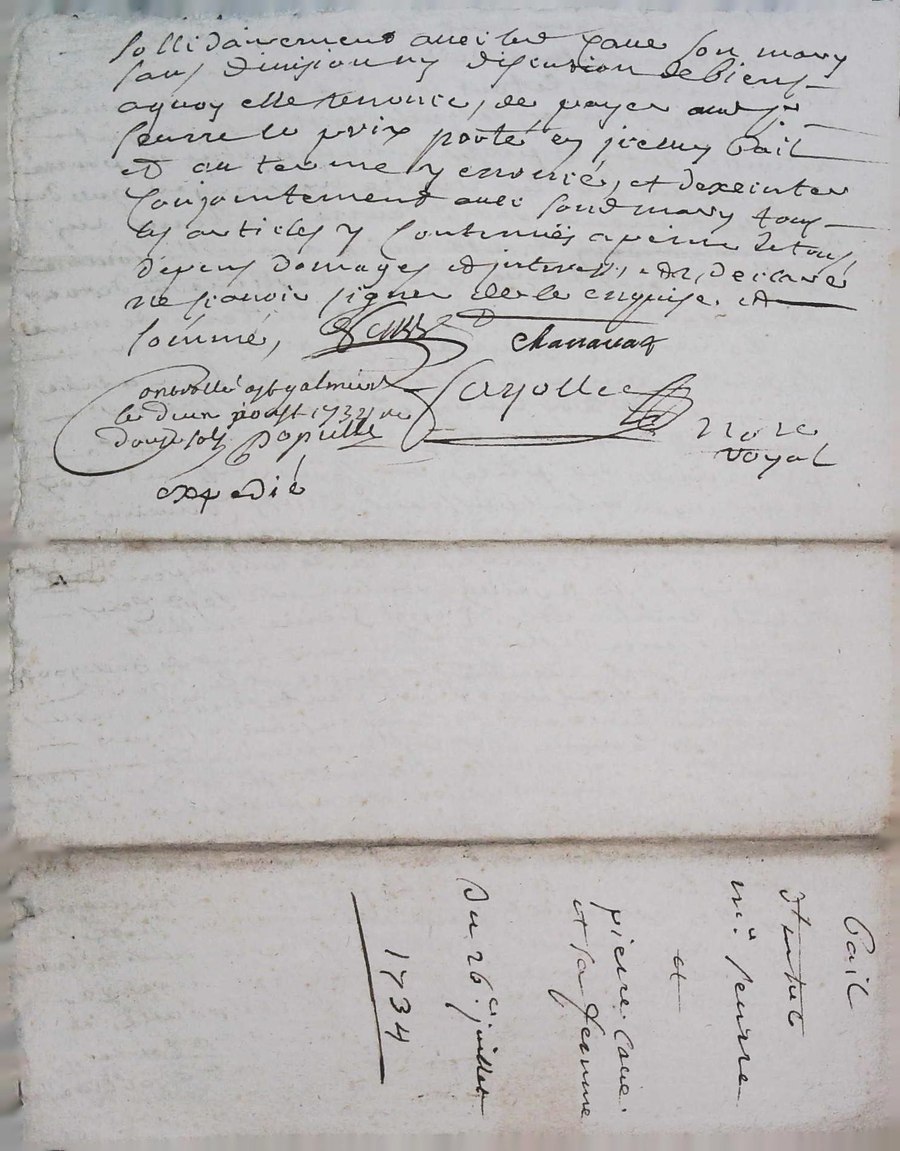 sollidairement avec led Caue son mary
sans division ny discution de biens
aquoy elle renonce, de payer aud sr
Seurre le prix porté en jceluy bail
et au terme y enoncé, et dexecuter
conjointement avec sond mary tous
les articles y contenues a peine de tous
depens domages et jnterests, et a declaré
ne scavoir signer de ce enquise et
sommé,
Seurre
Chanavat
ontrollé a st galmier
le deux aoust 1734
douze sols
Cayolle
no re
royal
expedié
bail
Entre
mr Seurre
et
pierre Caue
et sa femme
Du 26e juillet
1734